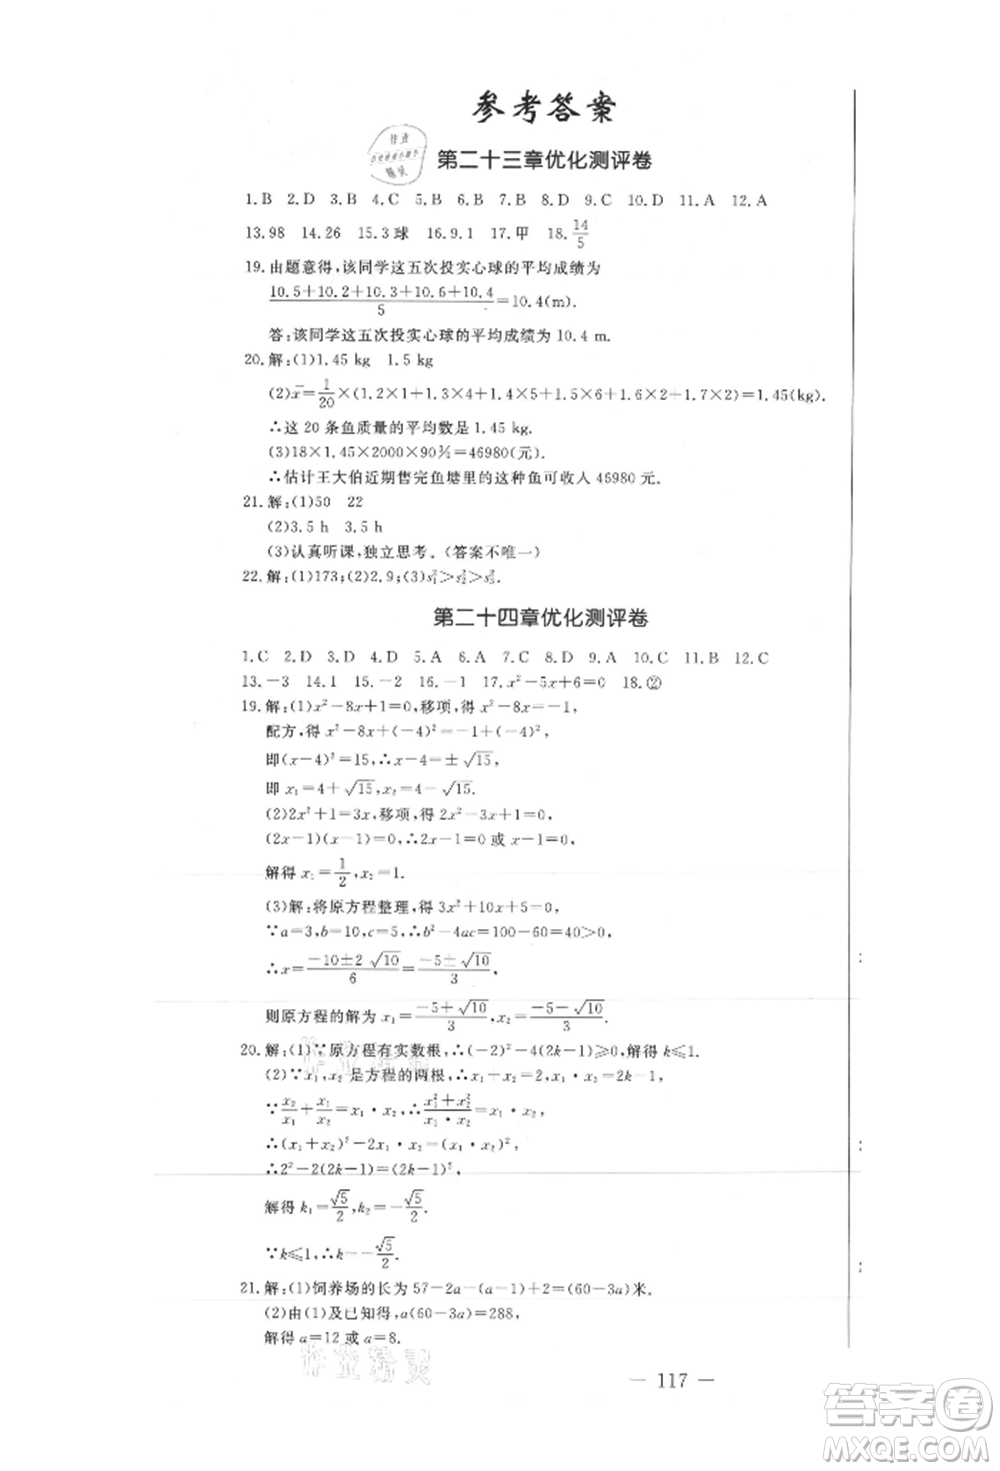 参考答案
作业
精灵
第二十三章优化测评卷
1.B 2.D 3.B 4.C 5.B 6.B 7.B 8.D 9.C 10.D 11.A 12.A
13.98 14.26 15.3球 16.9.1 17.甲 18.14/5
19.由题意得,该同学这五次投实心球的平均成绩为
(10.5+10.2+10.3+10.6+10.4)/5=10.4(m).
答:该同学这五次投实心球的平均成绩为10.4 m.
20.解:(1)1.45 kg 1.5 kg
(2)x̄=1/20×(1.2×1+1.3×4+1.4×5+1.5×6+1.6×2+1.7×2)=1.45(kg).
∴这20条鱼质量的平均数是1.45 kg.
(3)18×1.45×2000×90%=46980(元).
∴估计王大伯近期售完鱼塘里的这种鱼可收入46980元.
21.解:(1)50 22
(2)3.5 h 3.5 h
(3)认真听课,独立思考。(答案不唯一)
22.解:(1)173;(2)2.9;(3)s₁²>s₂²>s₃².
第二十四章优化测评卷
1.C 2.D 3.D 4.D 5.A 6.A 7.C 8.D 9.A 10.C 11.B 12.C
13.-3 14.1 15.-2 16.-1 17.x²-5x+6=0 18.②
19.解:(1)x²-8x+1=0,移项,得x²-8x=-1,
配方,得x²-8x+(-4)²=-1+(-4)²,
即(x-4)²=15,∴x-4=±√15,
即x₁=4+√15,x₂=4-√15.
(2)2x²+1=3x,移项,得2x²-3x+1=0,
(2x-1)(x-1)=0,∴2x-1=0或x-1=0,
解得x₁=1/2,x₂=1.
(3)解:将原方程整理,得3x²+10x+5=0,
∵a=3,b=10,c=5,∴b²-4ac=100-60=40>0,
∴x=(-10±2√10)/6=(-5±√10)/3,
则原方程的解为x₁=(-5+√10)/3,x₂=(-5-√10)/3.
20.解:(1)∵原方程有实数根,∴(-2)²-4(2k-1)⩾0,解得k⩽1.
(2)∵x₁,x₂是方程的两根,∴x₁+x₂=2,x₁·x₂=2k-1,
∵x₂/x₁+x₁/x₂=x₁·x₂,∴(x₁²+x₂²)/(x₁·x₂)=x₁·x₂,
∴(x₁+x₂)²-2x₁·x₂=(x₁·x₂)²,
∴2²-2(2k-1)=(2k-1)²,
解得k₁=√5/2,k₂=-√5/2.
∵k⩽1,∴k=-√5/2.
21.解:(1)饲养场的长为57-2a-(a-1)+2=(60-3a)米.
(2)由(1)及已知得,a(60-3a)=288,
解得a=12或a=8.
作业精灵
— 117 —
答案圈
MXQE.COM